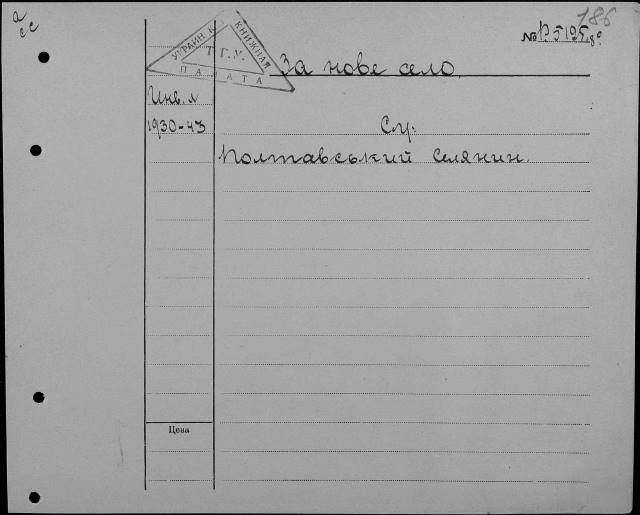 186
№ П 5195 8°
УКРАИН
КНИЖНАЯ
Т.Г.У.
ПАЛАТА
За нове село
Инв. л
1930-43
См:
Полтавський Селянин.
Цена